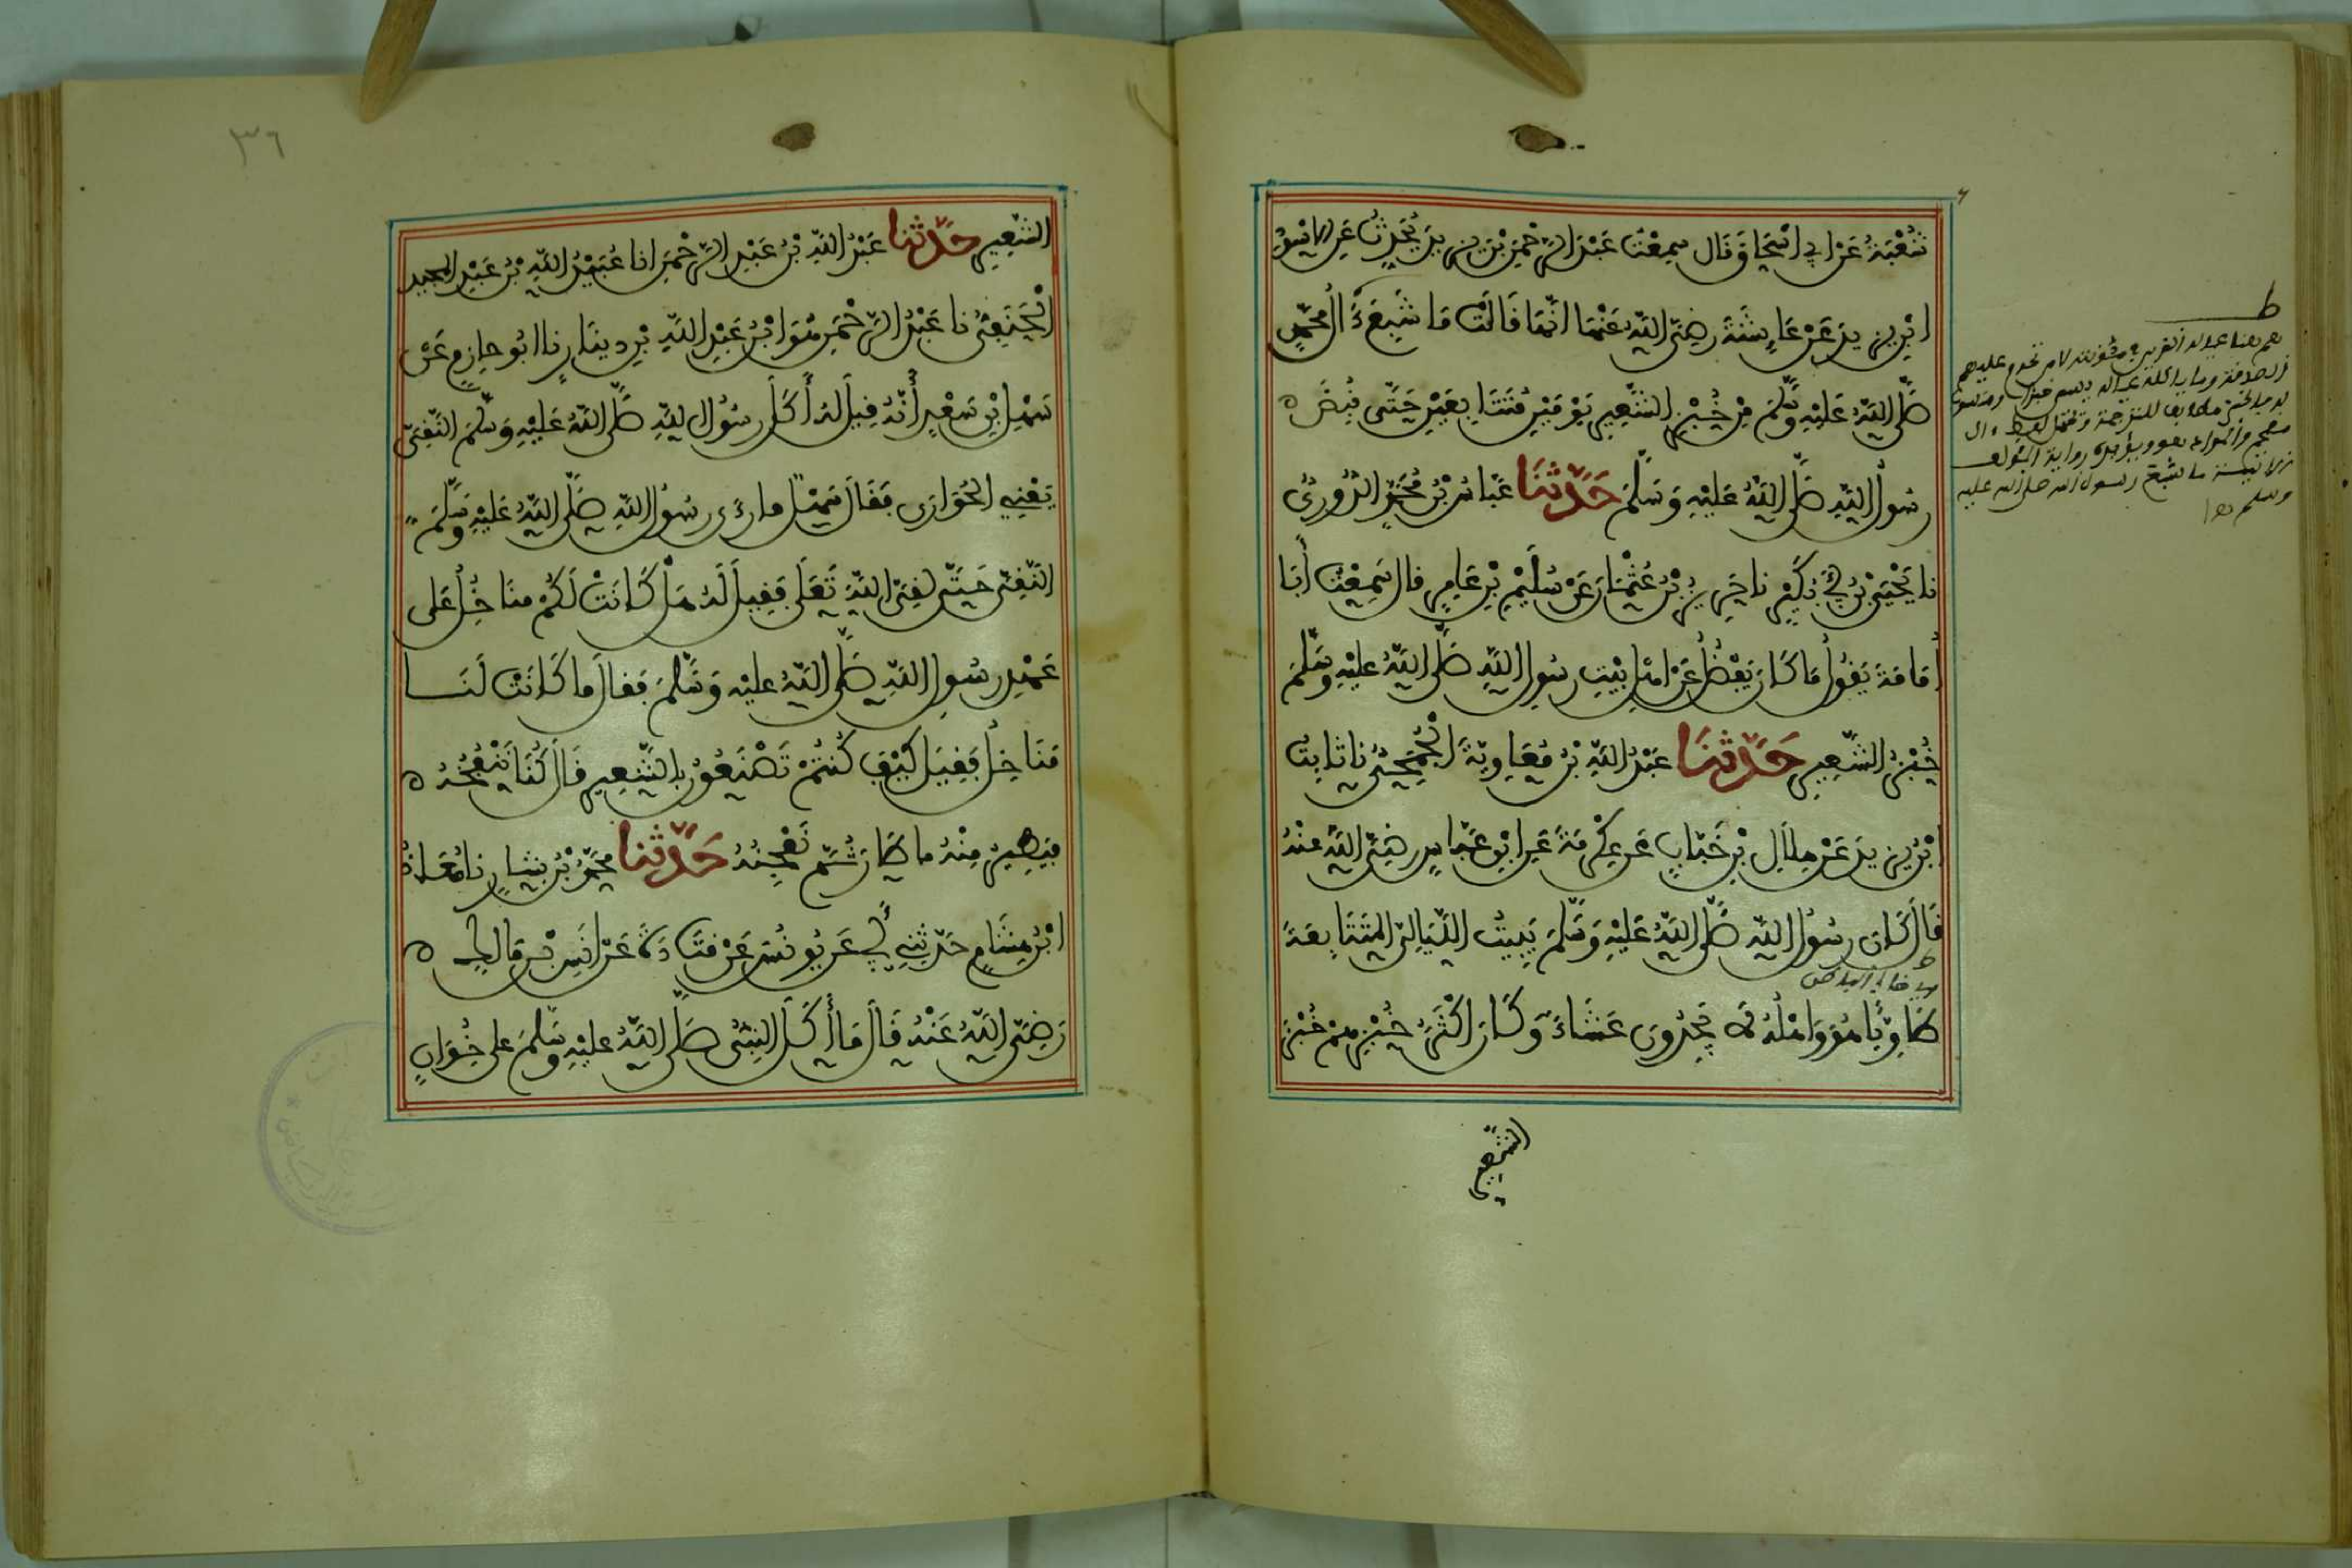 شُعْبَةُ عَنْ أَبِي إِسْحَاقَ قَالَ سَمِعْتُ عَبْدَ الرَّحْمَنِ بْنَ يَزِيدَ يُحَدِّثُ عَنِ الْأَسْوَدِ
ابْنِ يَزِيدَ عَنْ عَائِشَةَ رَضِيَ اللَّهُ عَنْهَا أَنَّهَا قَالَتْ مَا شَبِعَ آلُ مُحَمَّدٍ
صَلَّى اللَّهُ عَلَيْهِ وَسَلَّمَ مِنْ خُبْزِ الشَّعِيرِ يَوْمَيْنِ مُتَتَابِعَيْنِ حَتَّى قُبِضَ ه
رَسُولُ اللَّهِ صَلَّى اللَّهُ عَلَيْهِ وَسَلَّمَ حَدَّثَنَا عَبَّاسُ بْنُ مُحَمَّدٍ الدُّورِيُّ
نا يَحْيَى بْنُ أَبِي بُكَيْرٍ نا حَرِيزُ بْنُ عُثْمَانَ عَنْ سُلَيْمِ بْنِ عَامِرٍ قال سَمِعْتُ أَبَا
أُمَامَةَ يَقُولُ مَا كَانَ يَفْضُلُ عَنْ أَهْلِ بَيْتِ رَسُولِ اللَّهِ صَلَّى اللَّهُ عَلَيْهِ وَسَلَّمَ
خُبْزُ الشَّعِيرِ حَدَّثَنَا عَبْدُ اللَّهِ بْنُ مُعَاوِيَةَ الْجُمَحِيُّ نا ثَابِتُ
ابْنُ يَزِيدَ عَنْ هِلَالِ بْنِ خَبَّابٍ عَنْ عِكْرِمَةَ عَنِ ابْنِ عَبَّاسٍ رَضِيَ اللَّهُ عَنْهُ
قَالَ كَانَ رَسُولُ اللَّهِ صَلَّى اللَّهُ عَلَيْهِ وَسَلَّمَ يَبِيتُ اللَّيَالِيَ الْمُتَتَابِعَةَ
طَاوِيًا هُوَ وَأَهْلُهُ لَا يَجِدُونَ عَشَاءً وَكَانَ أَكْثَرُ خُبْزِهِمْ خُبْزَ
الشَّعِيرِ
٣٦
الشَّعِيرِ حَدَّثَنَا عَبْدُ اللَّهِ بْنُ عَبْدِ الرَّحْمَنِ انا عُبَيْدُ اللَّهِ بْنُ عَبْدِ الْمَجِيدِ
الْحَنَفِيُّ نا عَبْدُ الرَّحْمَنِ هُوَ ابْنُ عَبْدِ اللَّهِ بْنِ دِينَارٍ نا أَبُو حَازِمٍ عَنْ
سَهْلِ بْنِ سَعْدٍ أَنَّهُ قِيلَ لَهُ أَكَلَ رَسُولُ اللَّهِ صَلَّى اللَّهُ عَلَيْهِ وَسَلَّمَ النَّقِيَّ
يَعْنِي الْحُوَّارَى فَقَالَ سَهْلٌ مَا رَأَى رَسُولُ اللَّهِ صَلَّى اللَّهُ عَلَيْهِ وَسَلَّمَ
النَّقِيَّ حَتَّى لَقِيَ اللَّهَ تَعَلَى فَقِيلَ لَهُ هَلْ كَانَتْ لَكُمْ مَنَاخِلُ عَلَى
عَهْدِ رَسُولِ اللَّهِ صَلَّى اللَّهُ عَلَيْهِ وَسَلَّمَ فَقَالَ مَا كَانَتْ لَنَا
مَنَاخِلُ فَقِيلَ كَيْفَ كُنْتُمْ تَصْنَعُونَ بِالشَّعِيرِ قَالَ كُنَّا نَنْفُخُهُ ه
فَيَطِيرُ مِنْهُ مَا طَارَ ثُمَّ نَعْجِنُهُ حَدَّثَنَا مُحَمَّدُ بْنُ بَشَّارٍ نا مُعَاذُ
ابْنُ هِشَامٍ حَدَّثَنِي أَبِي عَنْ يُونُسَ عَنْ قَتَادَةَ عَنْ أَنَسِ بْنِ مَالِكٍ ه
رَضِيَ اللَّهُ عَنْهُ قَالَ مَا أَكَلَ النَّبِيُّ صَلَّى اللَّهُ عَلَيْهِ وَسَلَّمَ عَلَى خُوَانٍ